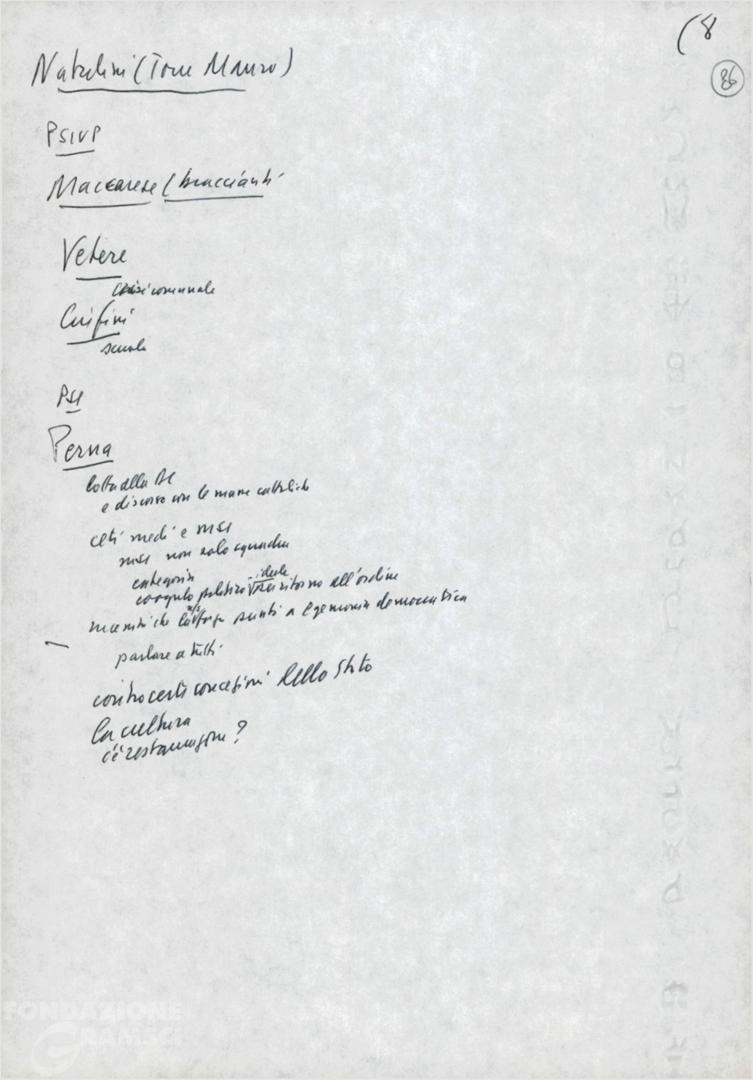 (8
86
Natalini (Torre Maura)
PSIUP
Maccarese (braccianti
Vetere
crisi comunale
Cuifini
scuola
PSI
Perna
lotta alla DC
e discorso con le masse cattoliche
ceti medi e MSI
MSI non solo squadre
categoria
coagulo politico-ideale ritorno all'ordine
che punti a egemonia democratica
parlare a tutti
contro certe concezioni dello Stato
la cultura
c'è restaurazione?
FONDAZIONE
GRAMSCI